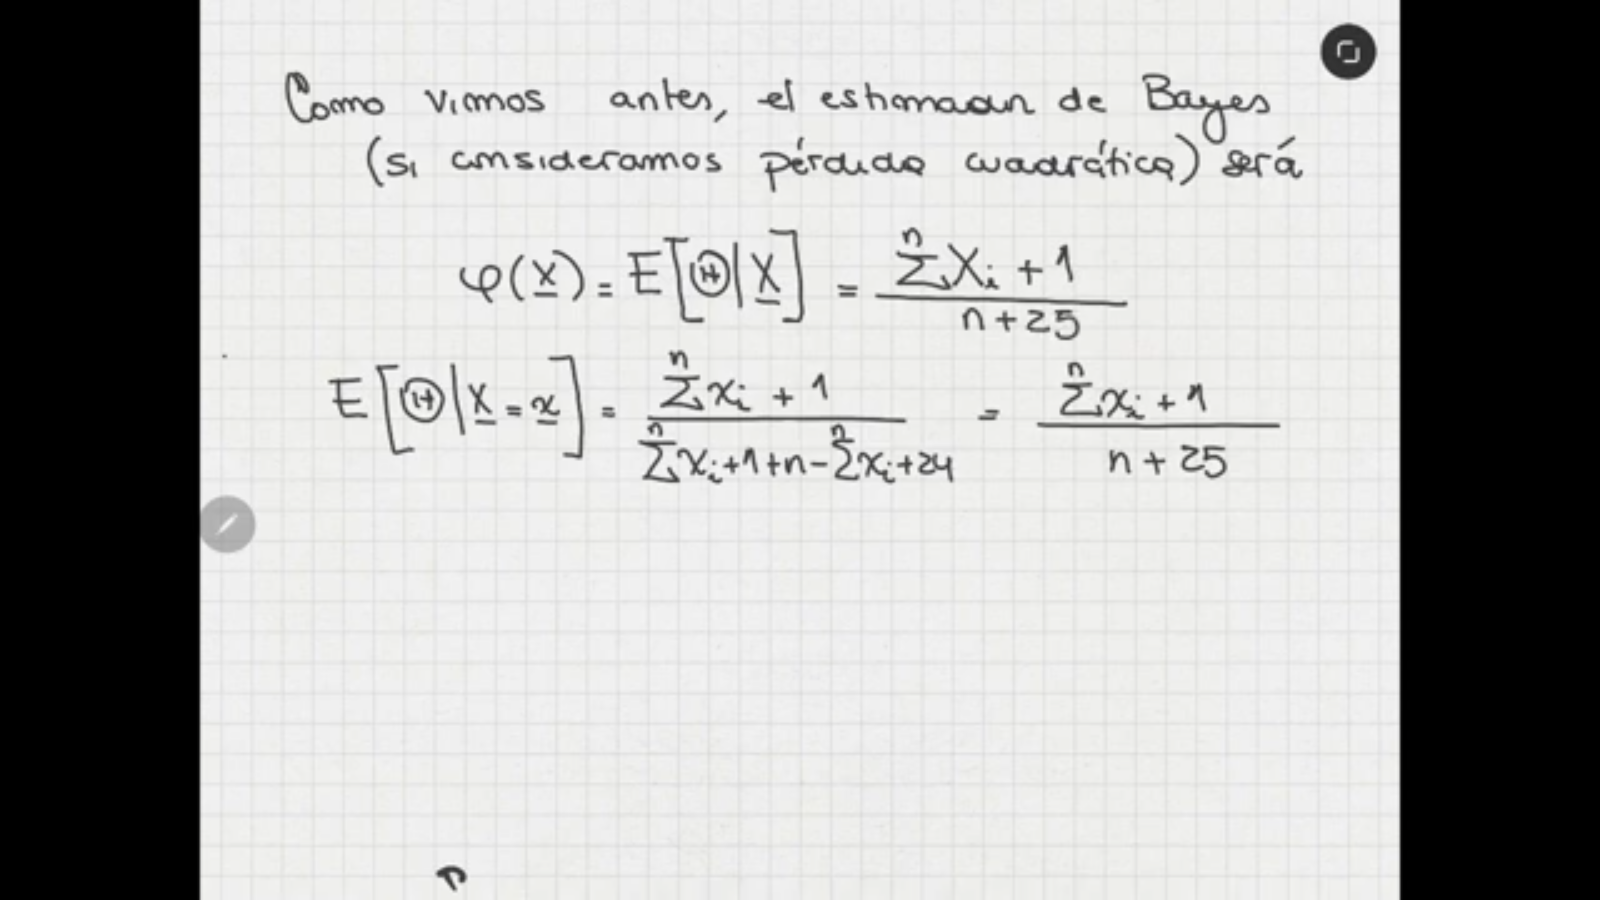 Como vimos antes, el estimador de Bayes
(si consideramos pérdida cuadrática) será
φ(X) = E[Θ|X] = (∑ⁿ Xᵢ + 1) / (n + 25)
E[Θ|X = x] = (∑ⁿ xᵢ + 1) / (∑ⁿ xᵢ + 1 + n − ∑ⁿ xᵢ + 24) = (∑ⁿ xᵢ + 1) / (n + 25)